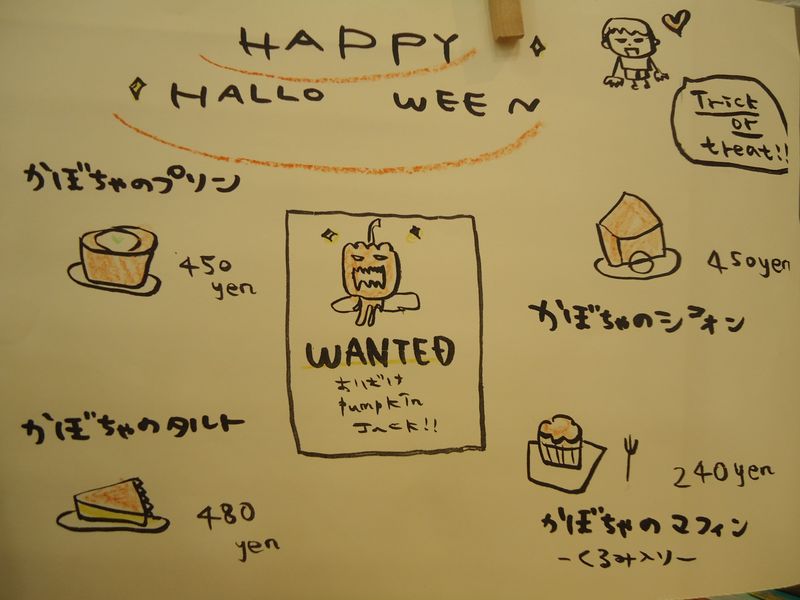 HAPPY
HALLO WEEN
Trick
or
treat!!
かぼちゃのプリン
450
yen
450yen
かぼちゃのシフォン
WANTED
おばけ
pumpkin
Jack!!
かぼちゃのタルト
480
yen
240yen
かぼちゃのマフィン
-くるみ入り-